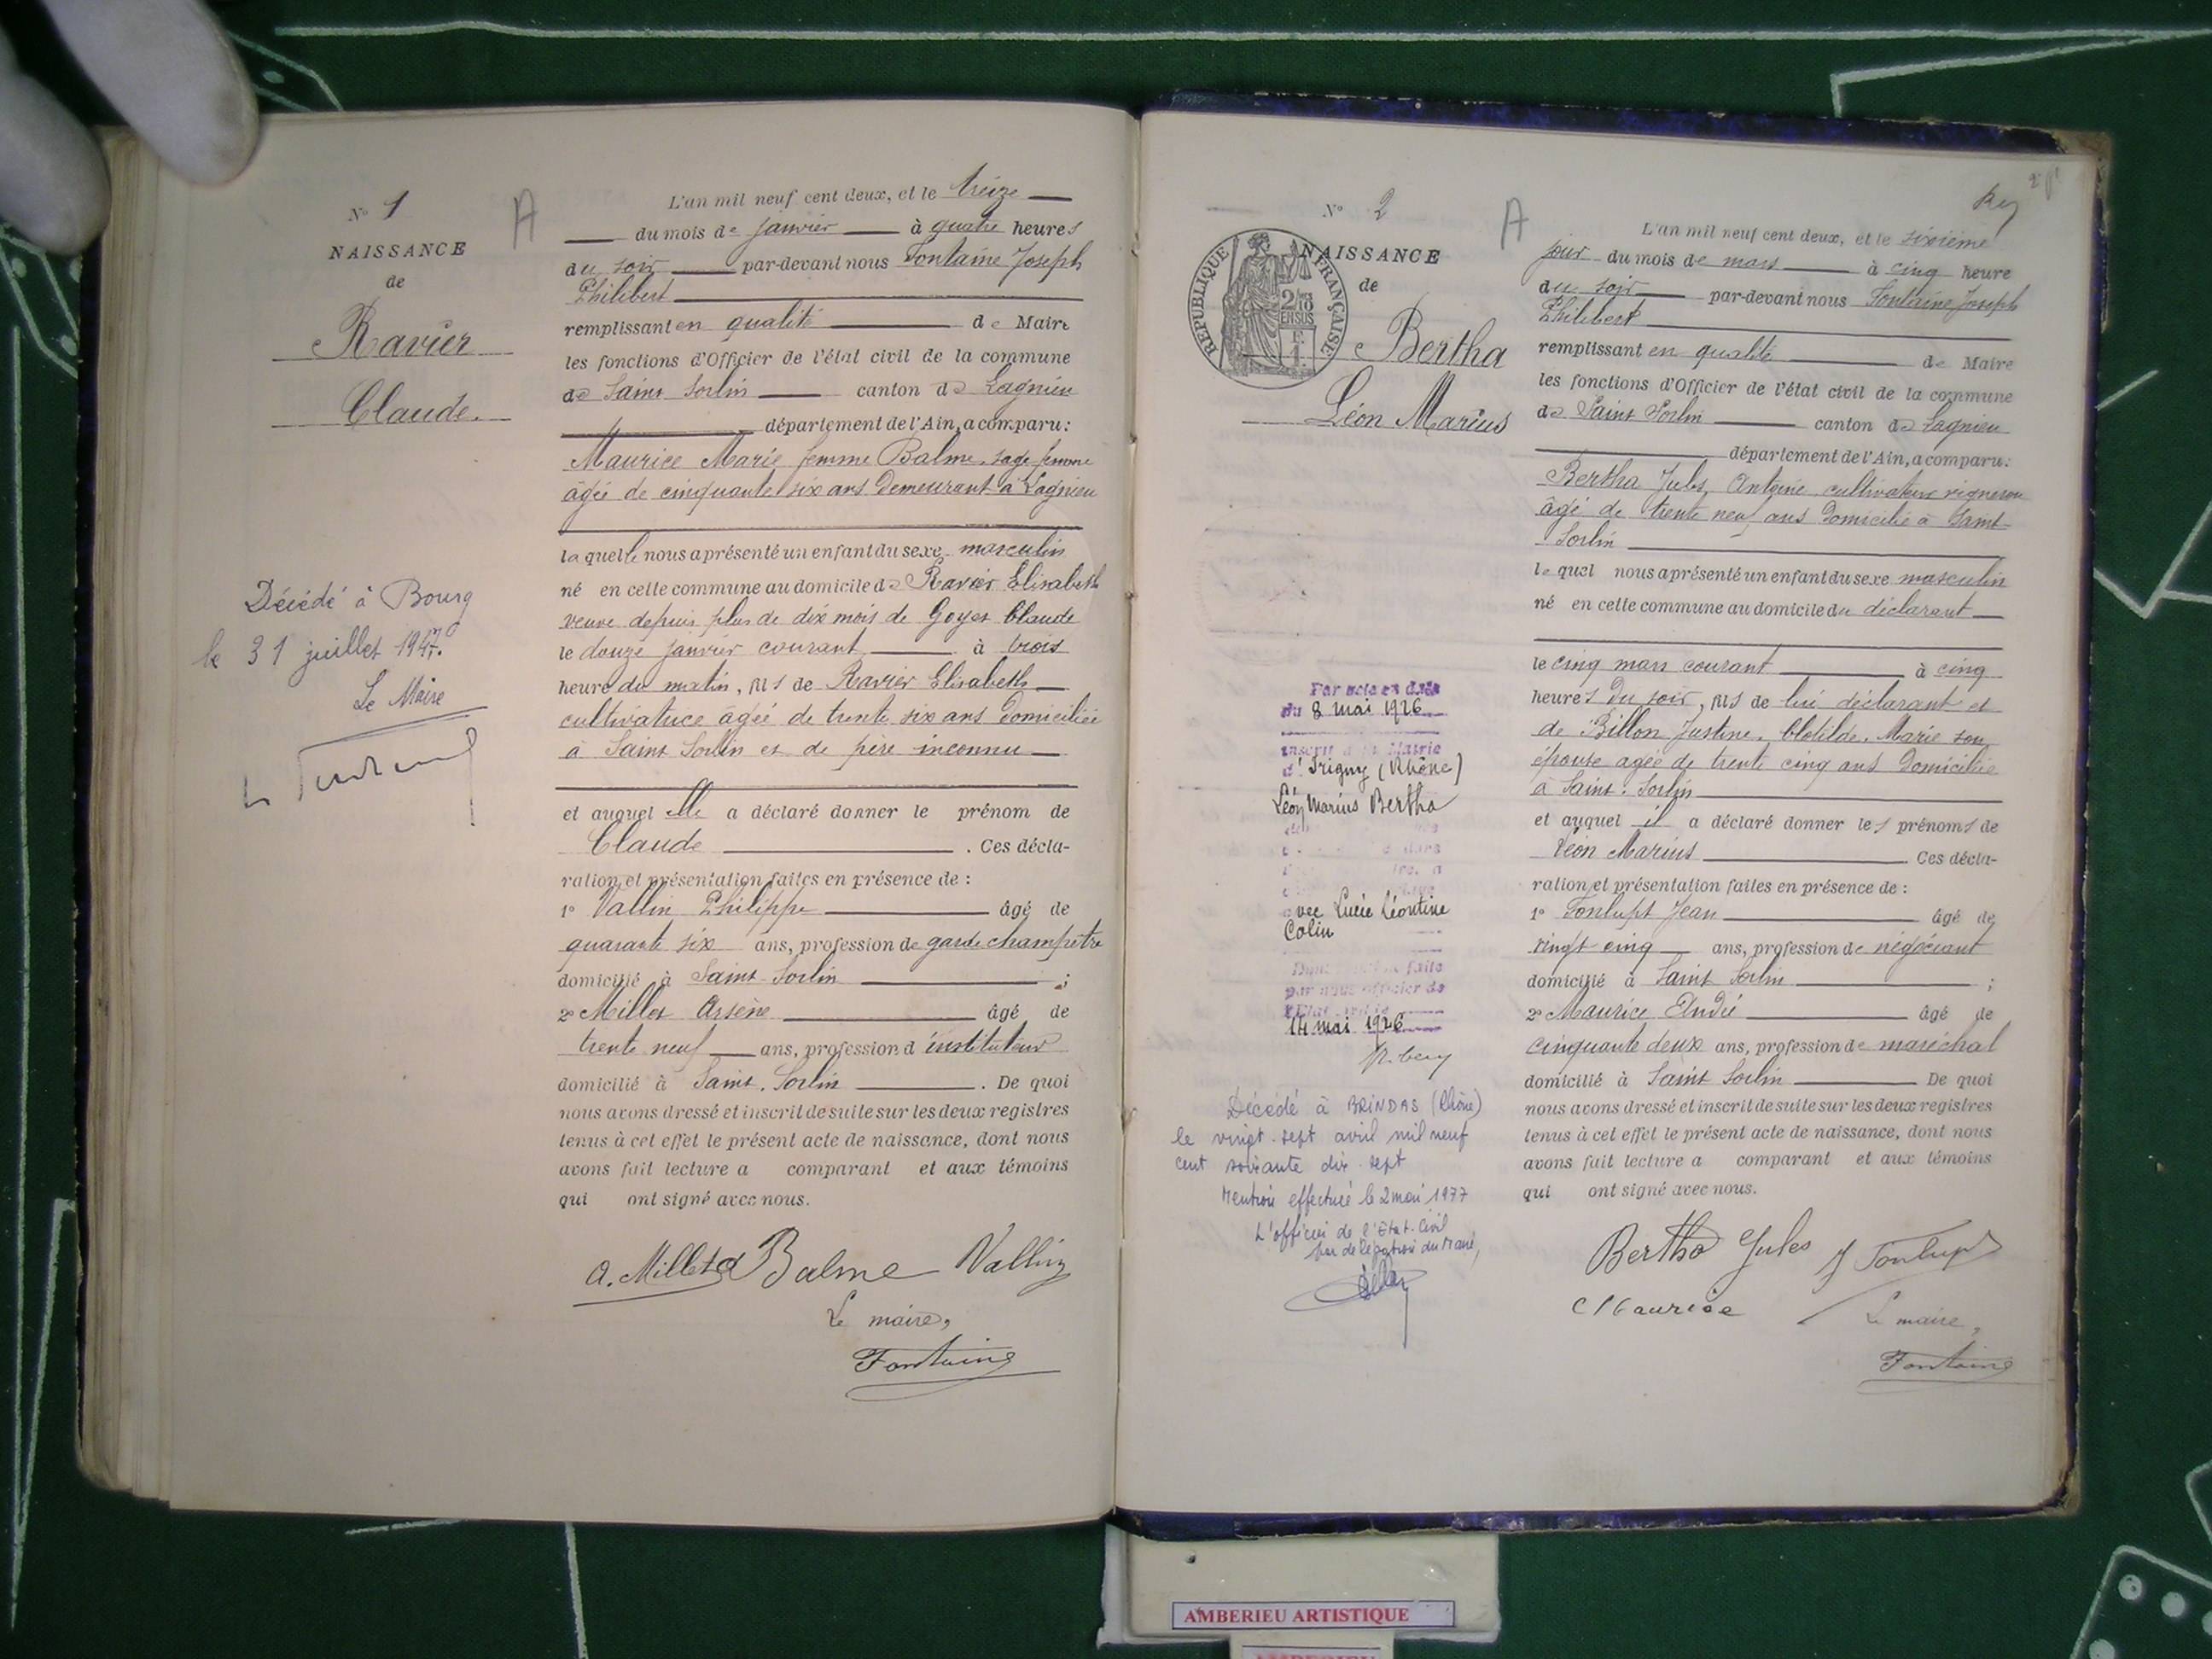 N° 1
NAISSANCE
de
Ravier
Claude.
Décédé à Bourg
le 31 juillet 1947.
Le Maire
A
L'an mil neuf cent deux, et le treize
du mois de janvier à quatre heures
du soir par-devant nous Fontaine Joseph
Philibert
remplissant en qualité de Maire
les fonctions d'Officier de l'état civil de la commune
de Saint Sorlin canton de Lagnieu
département de l'Ain, a comparu:
Maurice Marie femme Balme, sage femme
âgée de cinquante six ans demeurant à Lagnieu
laquelle nous a présenté un enfant du sexe masculin
né en cette commune au domicile de Ravier Elisabeth
veuve depuis plus de dix mois de Goyet Claude
le douze janvier courant à trois
heure du matin, fils de Ravier Elisabeth
cultivatrice âgée de trente six ans domiciliée
à Saint Sorlin et de père inconnu
et auquel elle a déclaré donner le prénom de
Claude . Ces décla-
ration et présentation faites en présence de :
1° Vallin Philippe âgé de
quarante six ans, profession de garde champêtre
domicilié à Saint-Sorlin ;
2° Millet Arsène âgé de
trente neuf ans, profession d'instituteur
domicilié à Saint. Sorlin . De quoi
nous avons dressé et inscrit de suite sur les deux registres
tenus à cet effet le présent acte de naissance, dont nous
avons fait lecture a comparant et aux témoins
qui ont signé avec nous.
A. Millet Balme Vallin
Le maire,
Fontaine
2
N° 2
RÉPUBLIQUE FRANÇAISE
2/10 EN SUS
NAISSANCE
de
Bertha
Léon Marius
Par acte en date
du 8 mai 1926
inscrit à la Mairie
d'Irigny (Rhône)
Léon Marius Bertha
avec Lucie Léontine
Colin
par nous officier de
l'Etat civil le
14 mai 1926
Décédé à BRINDAS (Rhône)
le vingt-sept avril mil neuf
cent soixante dix-sept
Mention effectuée le 2 mai 1977
L'officier de l'Etat-Civil
par délégation du Maire,
A
L'an mil neuf cent deux, et le sixième
jour du mois de mars à cinq heure
du soir par-devant nous Fontaine Joseph
Philibert
remplissant en qualité de Maire
les fonctions d'Officier de l'état civil de la commune
de Saint Sorlin canton de Lagnieu
département de l'Ain, a comparu:
Bertha Jules, Antoine cultivateur vigneron
âgé de trente neuf ans domicilié à Saint-
Sorlin
lequel nous a présenté un enfant du sexe masculin
né en cette commune au domicile du déclarant
le cinq mars courant à cinq
heures du soir, fils de lui déclarant et
de Billon Justine, Clotilde, Marie son
épouse agée de trente cinq ans domiciliée
à Saint. Sorlin
et auquel il a déclaré donner les prénoms de
Léon Marius . Ces décla-
ration et présentation faites en présence de :
1° Fonlupt Jean âgé de
vingt cinq ans, profession de négociant
domicilié à Saint Sorlin ;
2° Maurice âgé de
cinquante deux ans, profession de maréchal
domicilié à Saint Sorlin De quoi
nous avons dressé et inscrit de suite sur les deux registres
tenus à cet effet le présent acte de naissance, dont nous
avons fait lecture a comparant et aux témoins
qui ont signé avec nous.
Bertha Jules J Fonlupt
Maurice
Le maire,
Fontaine
AMBERIEU ARTISTIQUE